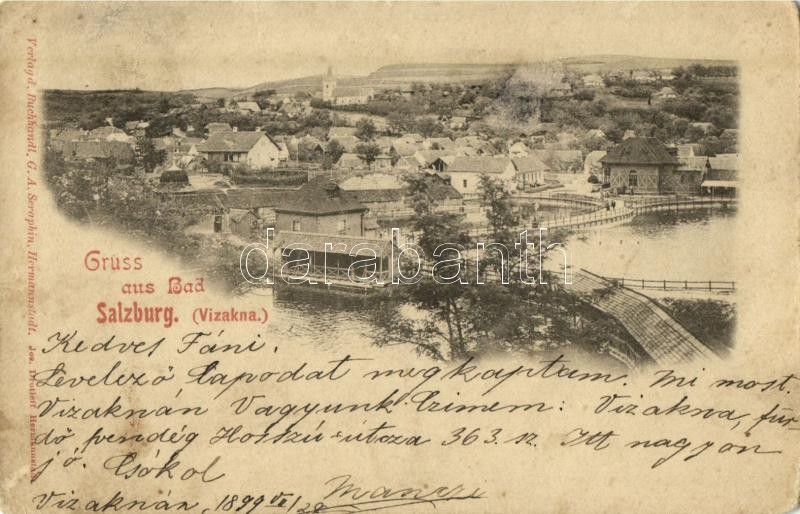 Verlag d. Buchhandl. G. A. Seraphin, Hermannstadt. Jos. Drotleff Hermannstadt
Gruss
aus Bad
Salzburg. (Vizakna.)
darabanth.com
Kedves Fáni.
Levelező Lapodat megkaptam. Mi most.
Vizaknán Vagyunk Czimem: Vizakna, für-
dő vendég Hosszú-útcza 363. sz. Itt nagyon
jó. Csókol
Vizaknán, 1899 VI/28